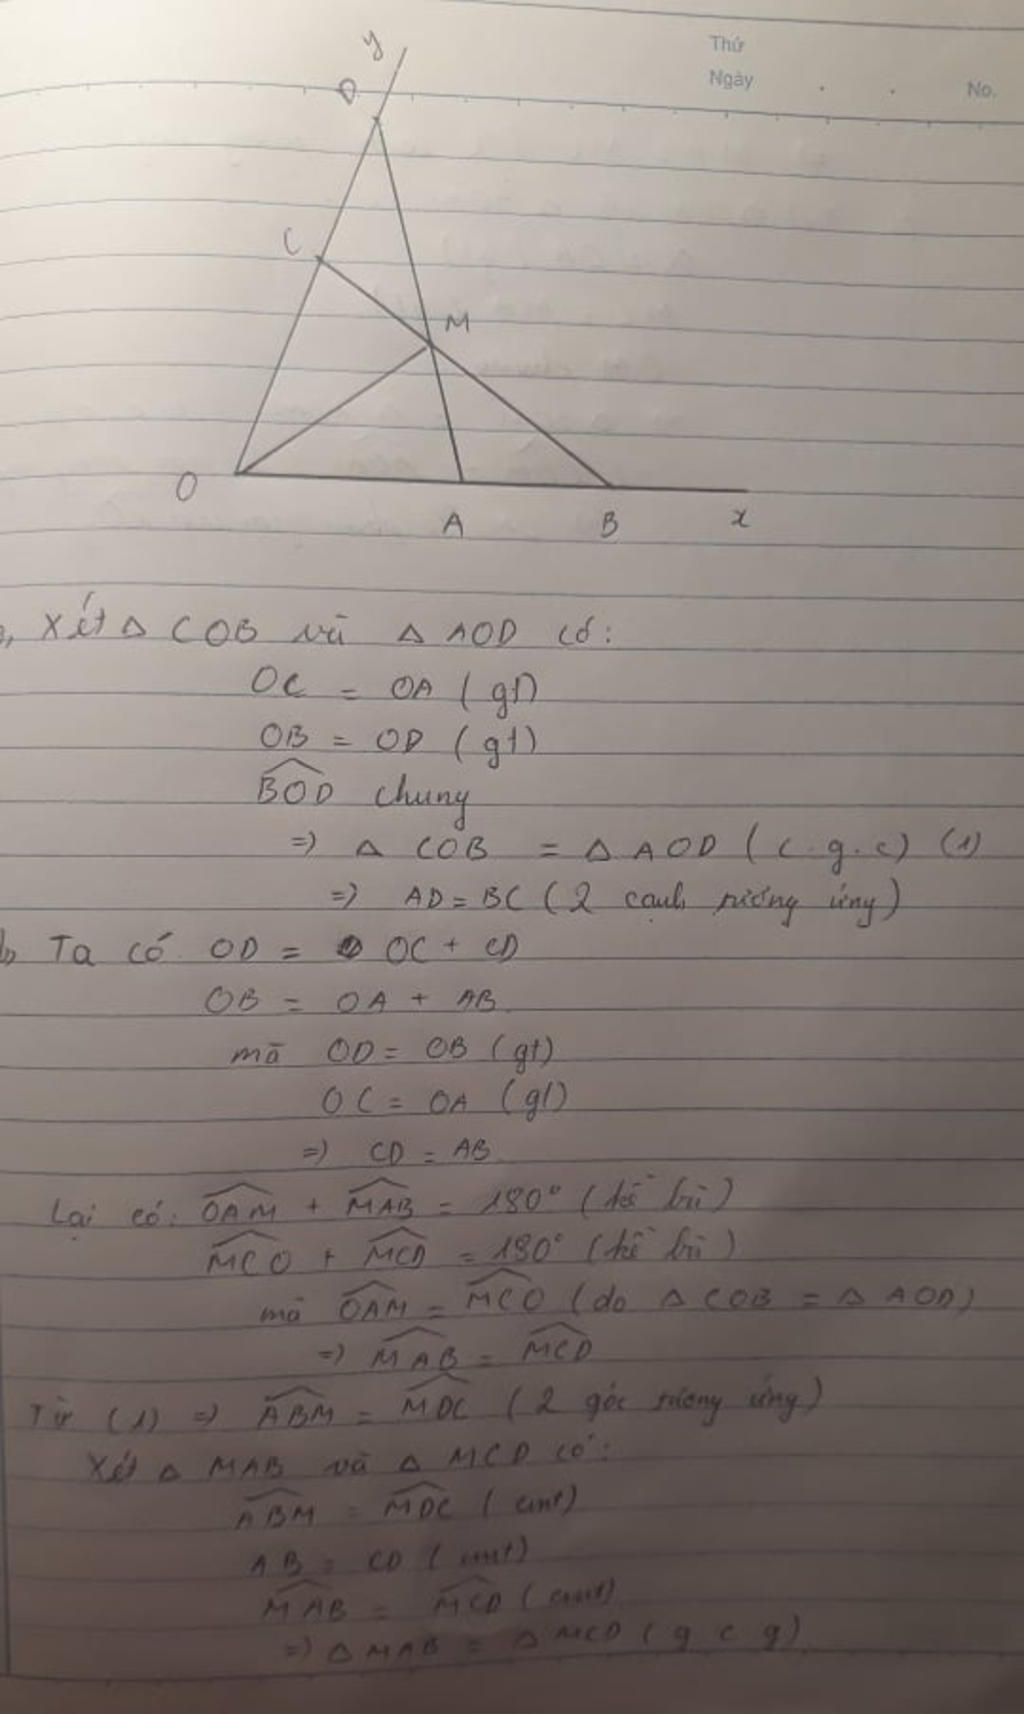 Thứ
Ngày
No.
y
D
C
M
O
A
B
x
a, Xét Δ COB và Δ AOD có:
OC = OA ( gt)
OB = OD ( gt)
\widehat{BOD} chung
=> Δ COB = Δ AOD ( c.g.c) (1)
=> AD = BC ( 2 cạnh tương ứng )
b, Ta có OD = OC + CD
OB = OA + AB
mà OD = OB (gt)
OC = OA (gt)
=> CD = AB
Lại có: \widehat{OAM} + \widehat{MAB} = 180° ( kề bù )
\widehat{MCO} + \widehat{MCD} = 180° ( kề bù )
mà \widehat{OAM} = \widehat{MCO} (do Δ COB = Δ AOD)
=> \widehat{MAB} = \widehat{MCD}
Từ (1) => \widehat{ABM} = \widehat{MDC} ( 2 góc tương ứng )
Xét Δ MAB và Δ MCD có:
\widehat{ABM} = \widehat{MDC} ( cmt)
AB = CD ( cmt)
\widehat{MAB} = \widehat{MCD} ( cmt)
=> Δ MAB = Δ MCD ( g c g )